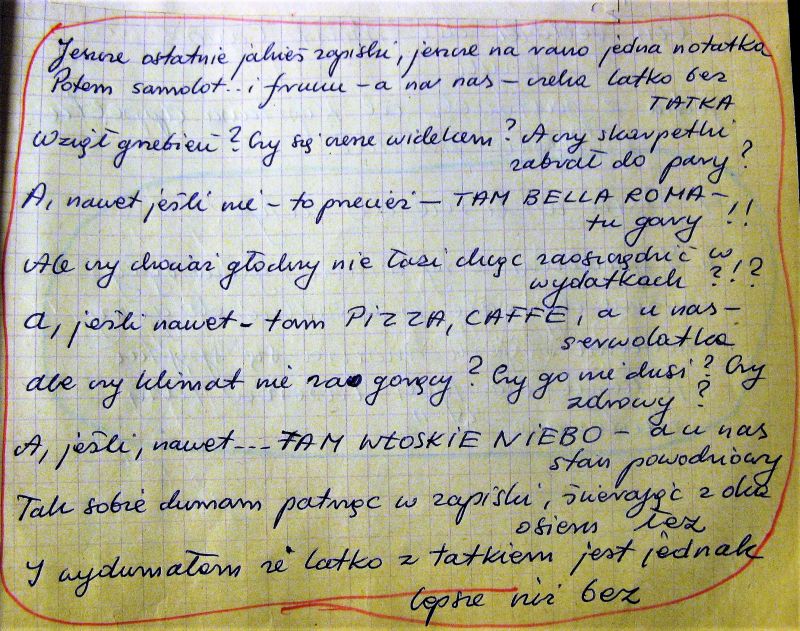 Jeszcze ostatnie jakieś zapiski, jeszcze na rano jedna notatka
Potem samolot... i fruuu – a na nas – czeka latko bez
TATKA
Wziął grzebień? Czy się czesze widelcem? A czy skarpetki
zabrał do pary?
A, nawet jeśli nie – to przecież – TAM BELLA ROMA –
tu gary!!
Ale czy chociaż głodny nie łazi chcąc zaoszczędzić w
wydatkach ?!?
A, jeśli nawet – tam PIZZA, CAFFE, a u nas –
serwolatka
ale czy klimat nie za gorący? Czy go nie dusi? Czy
zdrowy?
A, jeśli, nawet... TAM WŁOSKIE NIEBO – a u nas
stan powodziowy
Tak sobie dumam patrząc w zapiski, ścierając z oka
osiem łez
I wydumałam że latko z tatkiem jest jednak
lepsze niż bez